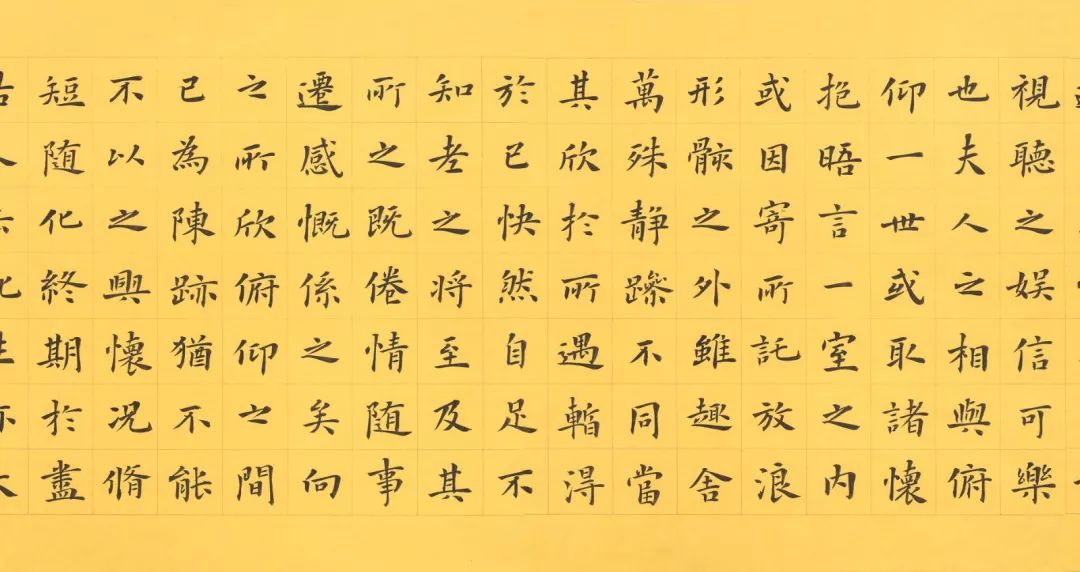 視聽之娛信可樂
也夫人之相與俯
仰一世或取諸懷
抱晤言一室之内
或因寄所託放浪
形骸之外雖趣舍
萬殊静躁不同當
其欣扵所遇暫得
於己快然自足不
知老之将至及其
所之既倦情随事
遷感慨係之矣向
之所欣俯仰之間
已為陳跡猶不能
不以之興懷况脩
短随化終期於盡